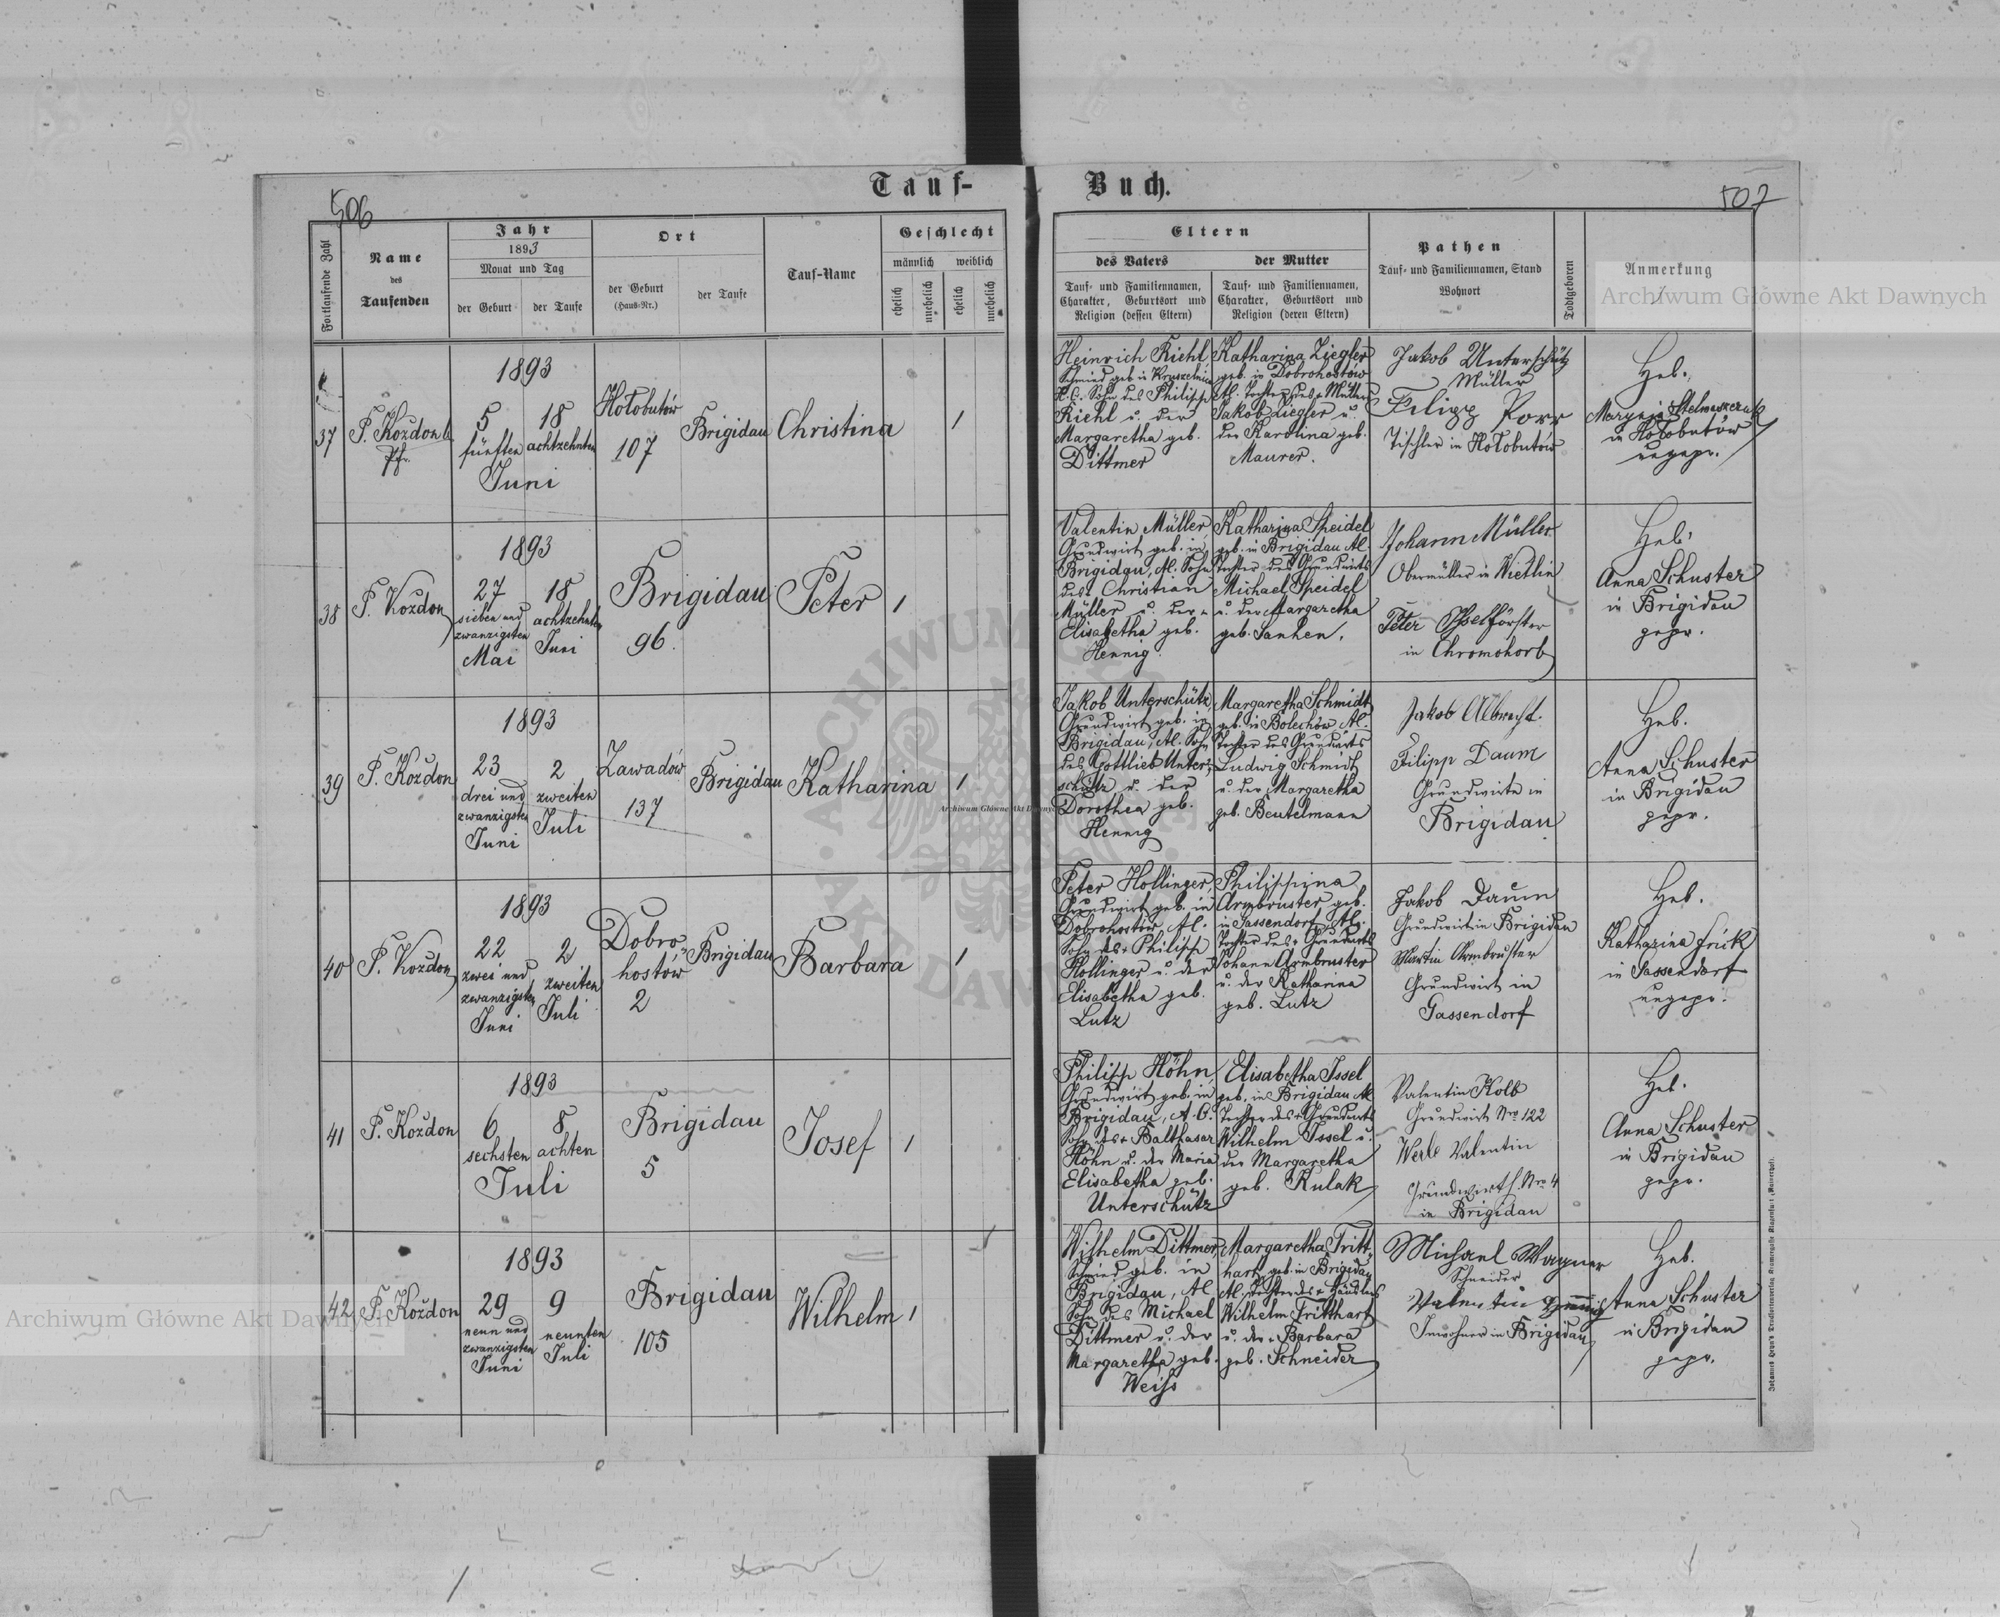 Tauf-
Buch.
506
507
Fortlaufende Zahl
Name
des
Taufenden
Jahr
1893
Monat und Tag
der Geburt
der Taufe
Ort
der Geburt
(Haus-Nr.)
der Taufe
Tauf-Name
Geschlecht
männlich
weiblich
ehelich
unehelich
ehelich
unehelich
Eltern
des Vaters
der Mutter
Tauf- und Familiennamen,
Charakter, Geburtsort und
Religion (dessen Eltern)
Tauf- und Familiennamen,
Charakter, Geburtsort und
Religion (deren Eltern)
Pathen
Tauf- und Familiennamen, Stand
Wohnort
Todtgeboren
Anmerkung
Archiwum Główne Akt Dawnych
37
Pf.
1893
5
fünften
Juni
18
achtzehnten
Hołobutów
107
Brigidau
Christina
1
Heinrich Riehl
Schmied geb. in
H. C. Sohn des Philipp
Riehl u. der
Margaretha geb.
Dittmer
Katharina Ziegler
geb. in Dobrohostów
Al. Tochter des + Müllers
Jakob Ziegler u.
der Karolina geb.
Maurer.
Jakob Unterschütz
Müller
Filipp Porr
Tischler in Hołobutów
Heb.
Marynia
in Hołobutów
ungepr.
38
P. Kozdon
1893
27
sieben und
zwanzigsten
Mai
18
achtzehnten
Juni
Brigidau
96.
Peter
1
Valentin Müller,
Grundwirt geb. in
Brigidau, Al. Sohn
des + Christian
Müller u. der +
Elisabetha geb.
Hennig.
Katharina Speidel
geb. in Brigidau Al.
Tochter des Grundwirts
Michael Speidel
u. der Margaretha
geb. Sanhen.
Johann Müller
Obermüller in
Peter
in Chromohorb
Heb.
Anna Schuster
in Brigidau
gepr.
39
P. Kozdon
1893
23
drei und
zwanzigsten
Juni
2
zweiten
Juli
Zawadów
137
Brigidau
Katharina
1
Jakob Unterschütz,
Grundwirt geb. in
Brigidau, Al. Sohn
des Gottlieb Unter-
schütz u. der
Dorothea geb.
Hennig
Margaretha Schmidt
geb. in Bolechów Al.
Tochter des Grundwirts
Ludwig Schmidt
u. der Margaretha
geb. Beutelmann
Jakob Albrecht.
Filipp Daum
Grundwirte in
Brigidau
Heb.
Anna Schuster
in Brigidau
gepr.
Archiwum Główne Akt Dawnych
40
P. Kozdon
1893
22
zwei und
zwanzigsten
Juni
2
zweiten
Juli
Dobro-
hostów
2
Brigidau
Barbara
1
Peter Hollinger,
Grundwirt geb. in
Dobrohostów, Al.
Sohn des + Philipp
Hollinger u. der
Elisabetha geb.
Lutz
Philippina
Armbruster geb.
in Gassendorf, Al.
Tochter des + Grundwirts
Johann Armbruster
u. der Katharina
geb. Lutz
Jakob Daum
Grundwirt in Brigidau
Martin Armbruster
Grundwirt in
Gassendorf
Heb.
Katharina Frick
in Gassendorf
ungepr.
41
P. Kozdon
1893
6
sechsten
Juli
8
achten
Brigidau
5
Josef
1
Philipp Höhn,
Grundwirt geb. in
Brigidau, A. C.
Sohn des + Balthasar
Höhn u. der Maria
Elisabetha geb.
Unterschütz
Elisabetha Issel
geb. in Brigidau Al.
Tochter des + Grundwirts
Wilhelm Issel u.
der Margaretha
geb. Kulak
Valentin Kolb
Grundwirt Nro 122
Werle Valentin
Grundwirth Nro 4
in Brigidau
Heb.
Anna Schuster
in Brigidau
gepr.
42
P. Kozdon
1893
29
neun und
zwanzigsten
Juni
9
neunten
Juli
Brigidau
105
Wilhelm
1
Wilhelm Dittmer,
Schmied geb. in
Brigidau, Al.
Sohn des Michael
Dittmer u. der
Margaretha geb.
Weiss
Margaretha Tritt-
hart geb. in Brigidau
Al. Tochter des +
Wilhelm Tritthart
u. der + Barbara
geb. Schneider
Michael Wagner
Schneider
Valentin Hennig
Inwohner in Brigidau
Heb.
Anna Schuster
in Brigidau
gepr.
Archiwum Główne Akt Dawnych